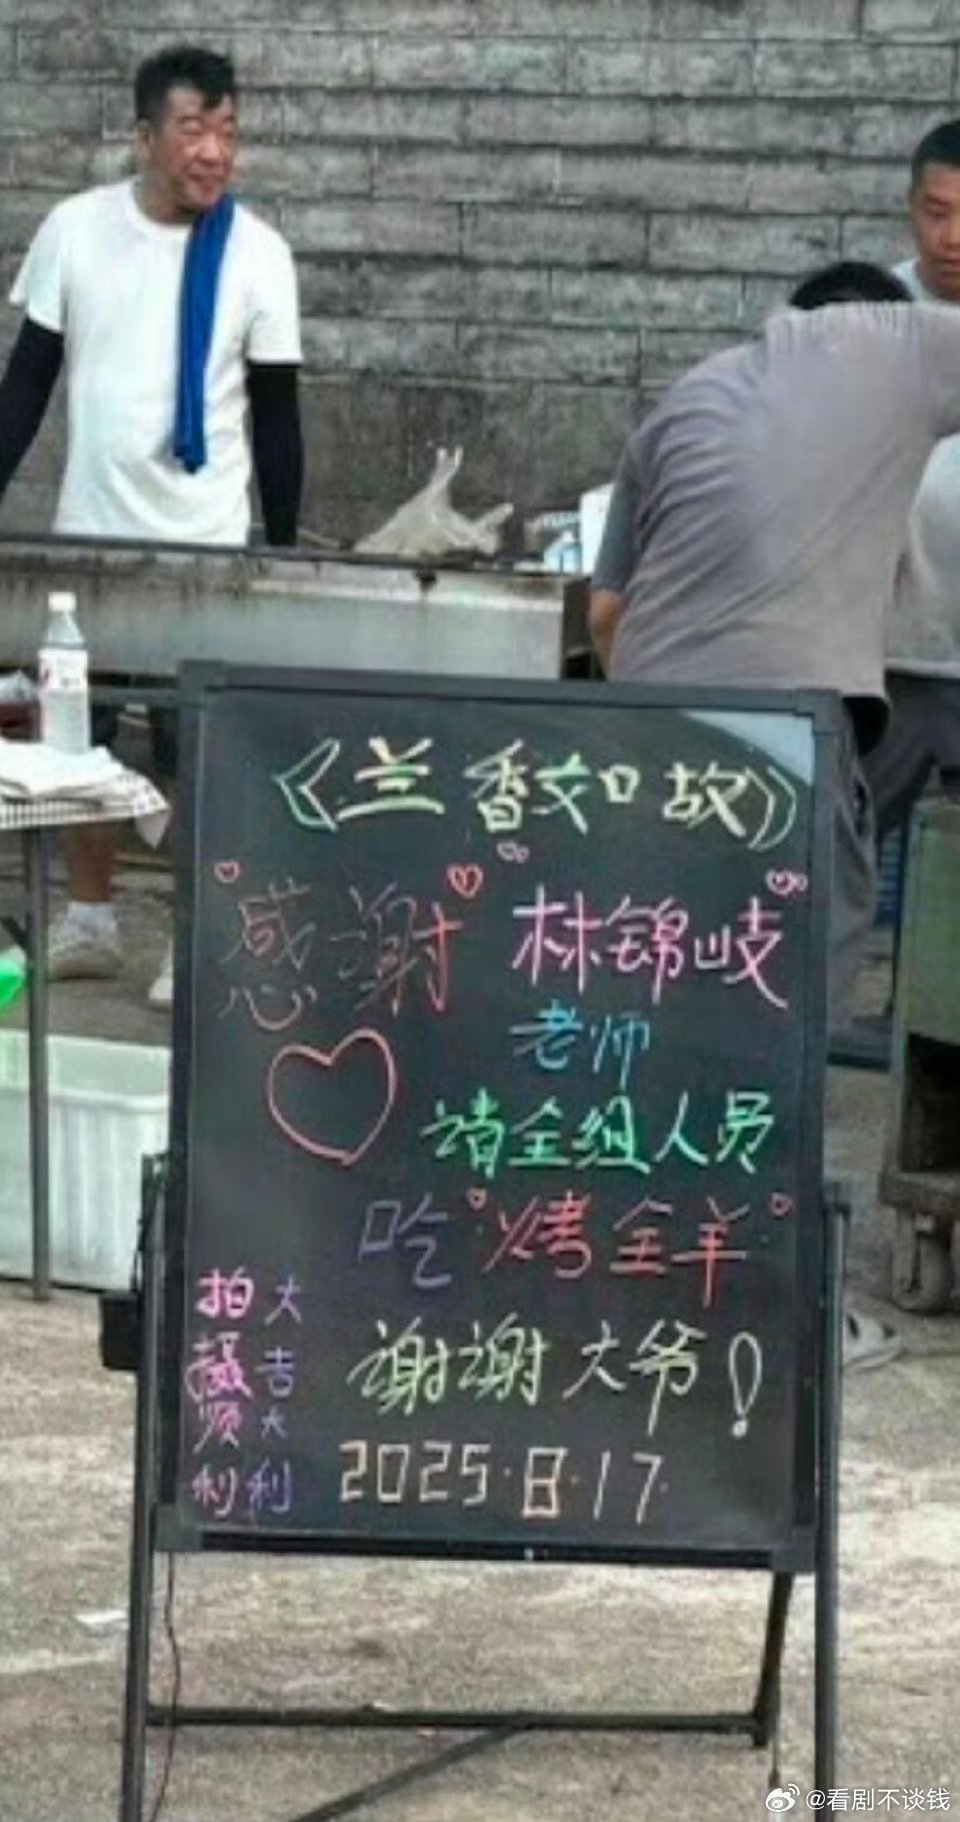 《兰香如故》
感谢"林锦岐"
老师
请全组人员
吃"烤全羊"
谢谢大爷！
2025.8.17.
拍摄顺利
大吉大利
@看剧不谈钱